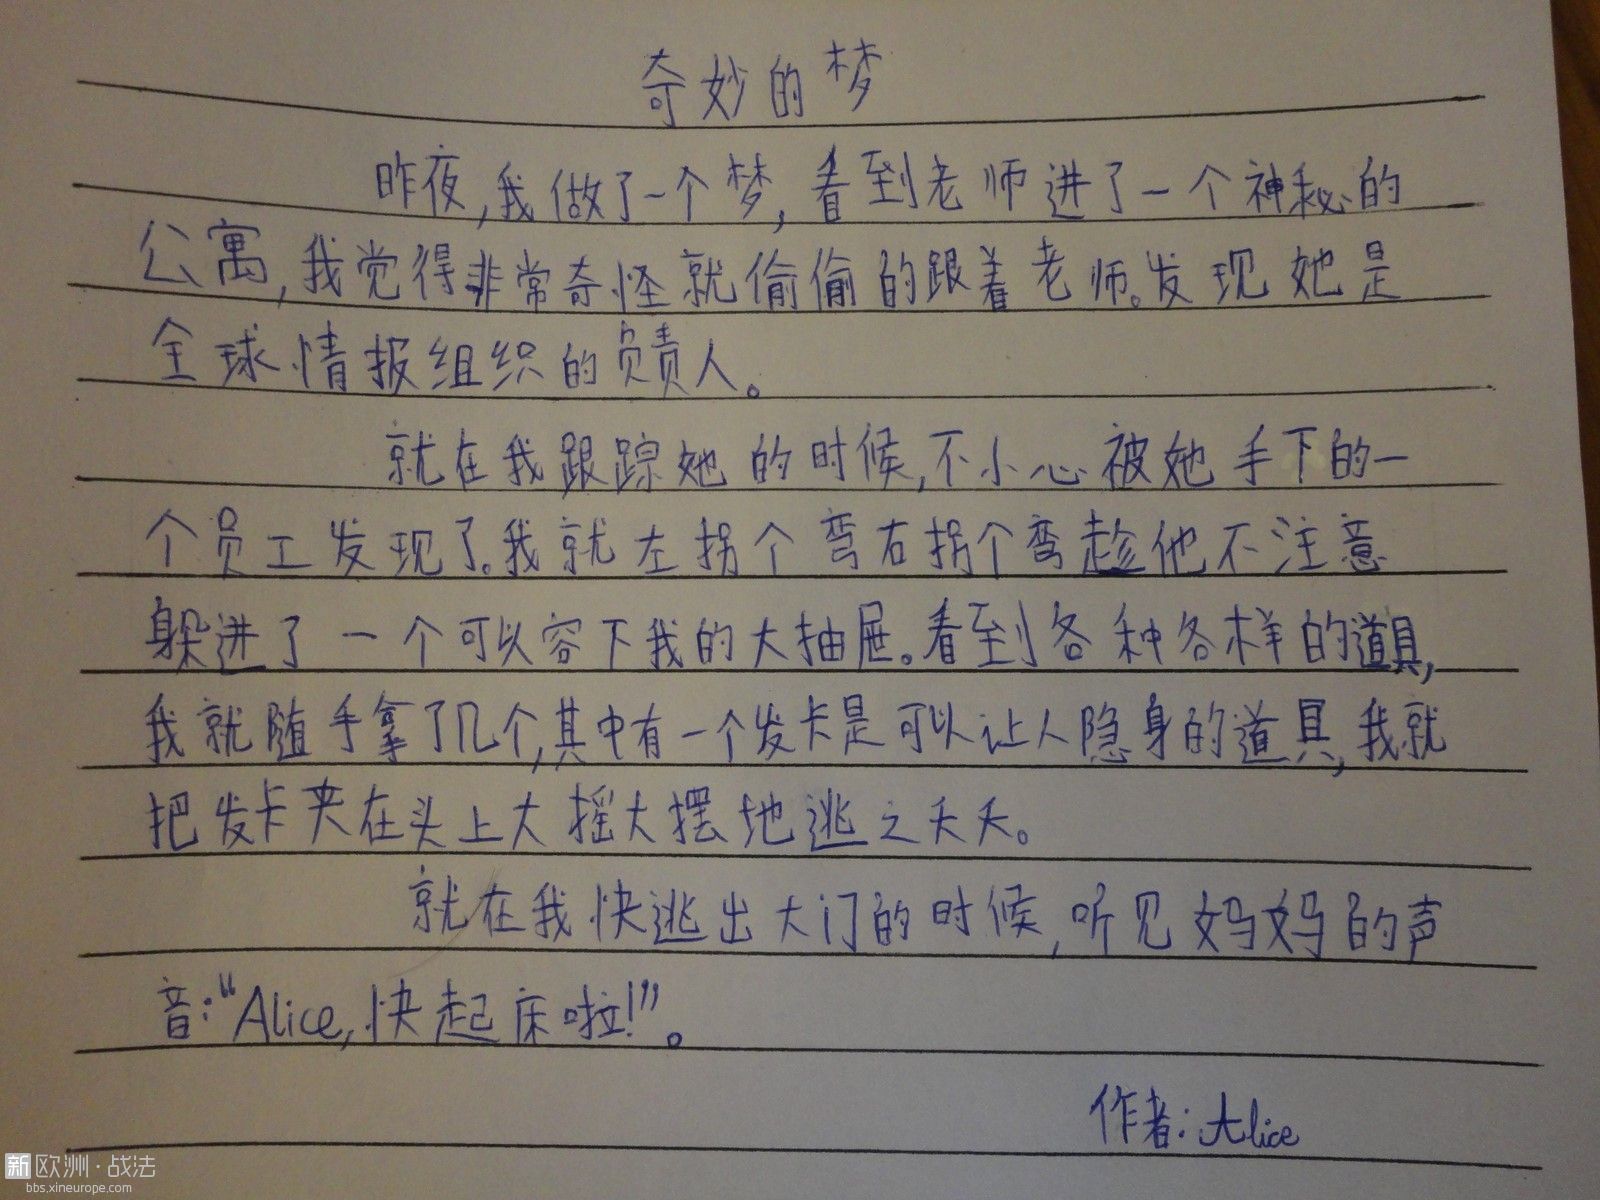 奇妙的梦
昨夜,我做了一个梦,看到老师进了一个神秘的
公寓,我觉得非常奇怪就偷偷的跟着老师。发现她是
全球情报组织的负责人。
就在我跟踪她的时候,不小心被她手下的一
个员工发现了。我就左拐个弯右拐个弯趁他不注意
躲进了一个可以容下我的大抽屉。看到各种各样的道具,
我就随手拿了几个,其中有一个发卡是可以让人隐身的道具,我就
把发卡夹在头上大摇大摆地逃之夭夭。
就在我快逃出大门的时候,听见妈妈的声
音:“Alice,快起床啦!”。
作者:Alice
新欧洲·战法
bbs.xineurope.com